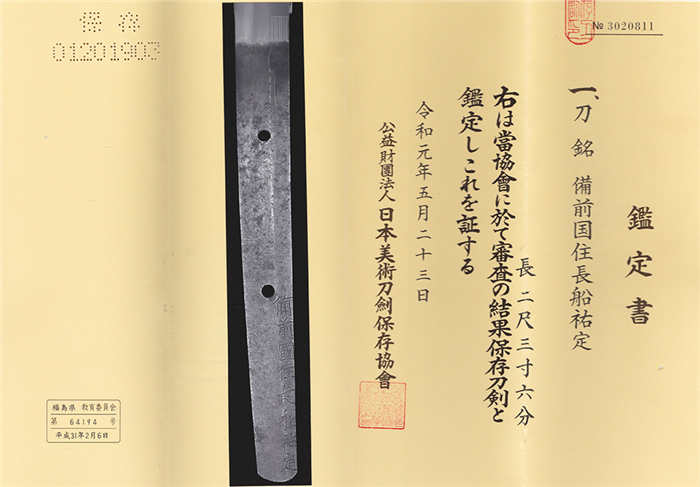 № 3020811
鑑定書
一、刀 銘 備前国住長船祐定
長 二尺三寸六分
右は當協會に於て審査の結果保存刀剣と
鑑定しこれを証する
令和元年五月二十三日
公益財團法人 日本美術刀劍保存協會
保存
01201903
福島県 教育委員会
第 64194 号
平成31年2月6日